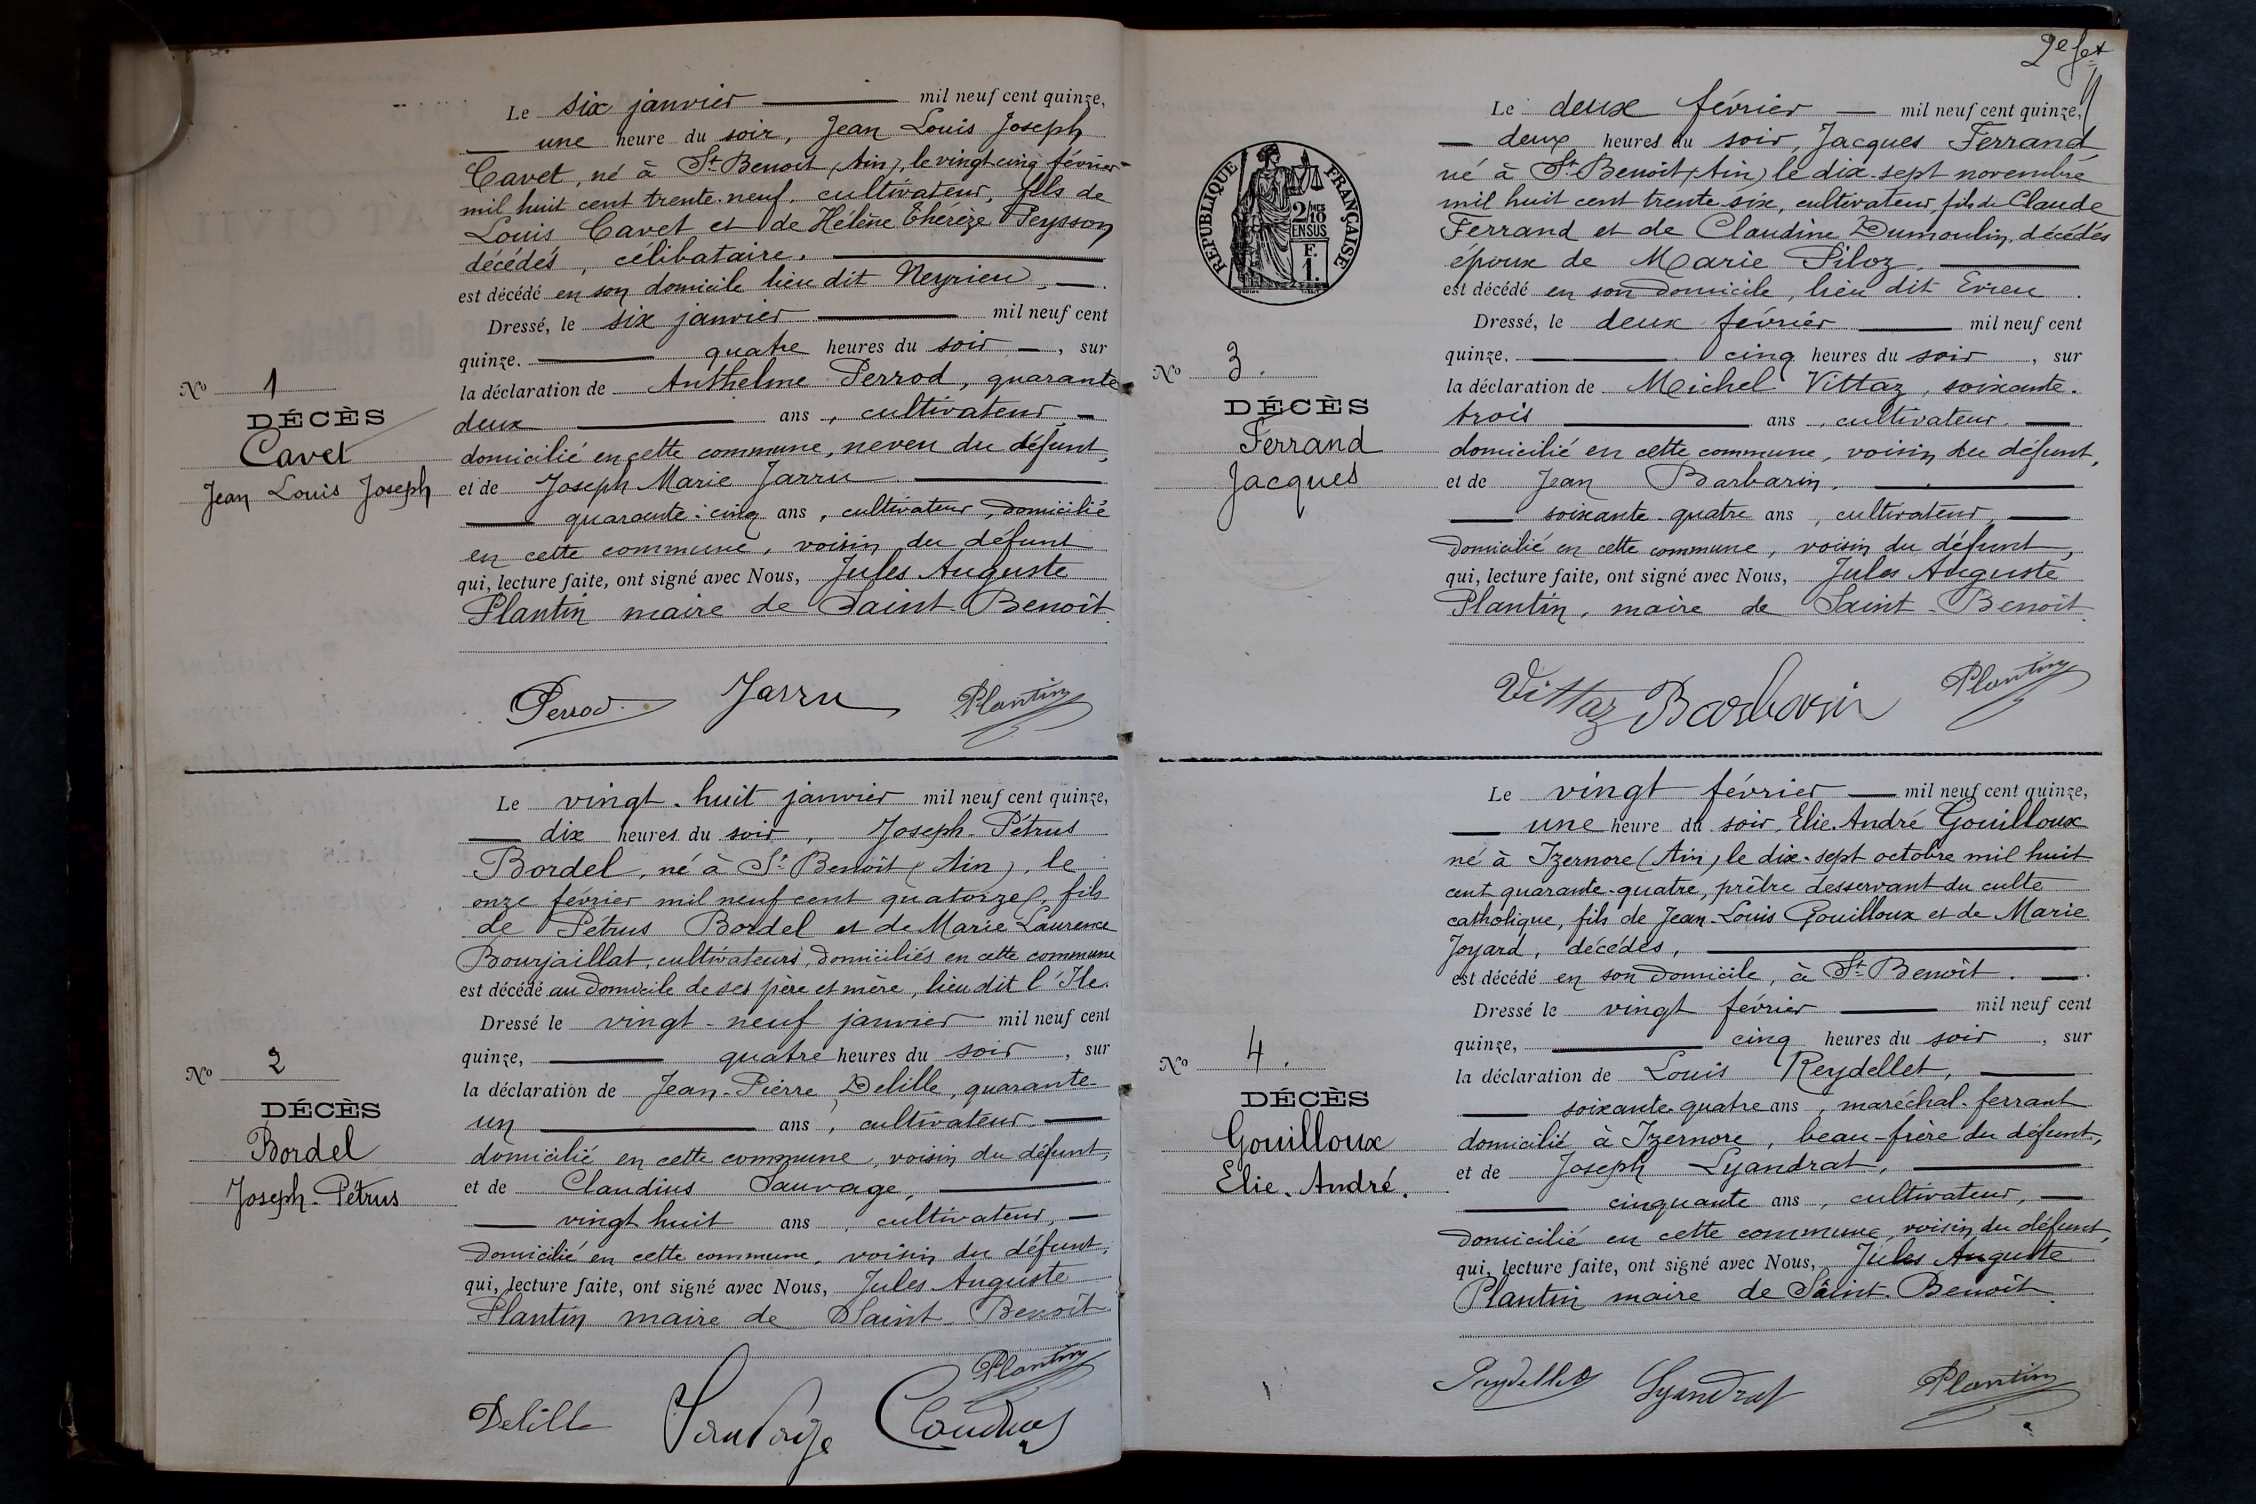 Le six janvier mil neuf cent quinze,
une heure du soir, Jean Louis Joseph
Cavet, né à St Benoit (Ain), le vingt-cinq février
mil huit cent trente-neuf, cultivateur, fils de
Louis Cavet et de Hélène Thérèze Peysson
décédés, célibataire,
est décédé en son domicile lieu dit Neyrieu,
Dressé, le six janvier mil neuf cent
quinze. quatre heures du soir, sur
la déclaration de Anthelme Perrod, quarante
deux ans, cultivateur,
domicilié en cette commune, neveu du défunt,
et de Joseph Marie Jarru
quarante-cinq ans, cultivateur, domicilié
en cette commune, voisin du défunt
qui, lecture faite, ont signé avec Nous, Jules Auguste
Plantin maire de Saint-Benoît
Perrod Jarru Plantin
No 1
DÉCÈS
Cavet
Jean Louis Joseph
Le vingt-huit janvier mil neuf cent quinze,
dix heures du soir, Joseph-Pétrus
Bordel, né à St Benoît (Ain), le
onze février mil neuf cent quatorze, fils
de Petrus Bordel et de Marie Laurence
Bourjaillat, cultivateurs, domiciliés en cette commune
est décédé au domicile de ses père et mère, lieu dit l'Ile.
Dressé le vingt-neuf janvier mil neuf cent
quinze, quatre heures du soir, sur
la déclaration de Jean-Pierre Delille, quarante-
un ans, cultivateur
domicilié en cette commune, voisin du défunt,
et de Claudius Sauvage,
vingt huit ans, cultivateur,
domicilié en cette commune, voisin du défunt,
qui, lecture faite, ont signé avec Nous, Jules Auguste
Plantin maire de Saint-Benoît
Plantin
Delille Sauvage Claudius
No 2
DÉCÈS
Bordel
Joseph-Pétrus
2e
RÉPUBLIQUE FRANÇAISE
2/10 EN SUS
F. 1.
Le deux février mil neuf cent quinze,
deux heures du soir, Jacques Ferrand
né à St Benoit (Ain) le dix-sept novembre
mil huit cent trente six, cultivateur, fils de Claude
Ferrand et de Claudine Dumoulin, décédés
époux de Marie Siloz,
est décédé en son domicile, lieu dit Evieu.
Dressé, le deux février mil neuf cent
quinze. cinq heures du soir, sur
la déclaration de Michel Vittaz, soixante-
trois ans, cultivateur,
domicilié en cette commune, voisin du défunt,
et de Jean Barbarin,
soixante-quatre ans, cultivateur,
domicilié en cette commune, voisin du défunt,
qui, lecture faite, ont signé avec Nous, Jules Auguste
Plantin, maire de Saint-Benoît
Vittaz Barbarin Plantin
No 3.
DÉCÈS
Ferrand
Jacques
Le vingt février mil neuf cent quinze,
une heure du soir, Elie-André Gouilloux
né à Izernore (Ain), le dix-sept octobre mil huit
cent quarante-quatre, prêtre desservant du culte
catholique, fils de Jean-Louis Gouilloux et de Marie
Joyard, décédés,
est décédé en son domicile, à St Benoît.
Dressé le vingt février mil neuf cent
quinze, cinq heures du soir, sur
la déclaration de Louis Reydellet,
soixante-quatre ans, maréchal-ferrant
domicilié à Izernore, beau-frère du défunt,
et de Joseph Lyandrat,
cinquante ans, cultivateur,
domicilié en cette commune, voisin du défunt,
qui, lecture faite, ont signé avec Nous, Jules Auguste
Plantin maire de Saint-Benoît
Reydellet Lyandrat Plantin
No 4.
DÉCÈS
Gouilloux
Elie-André.